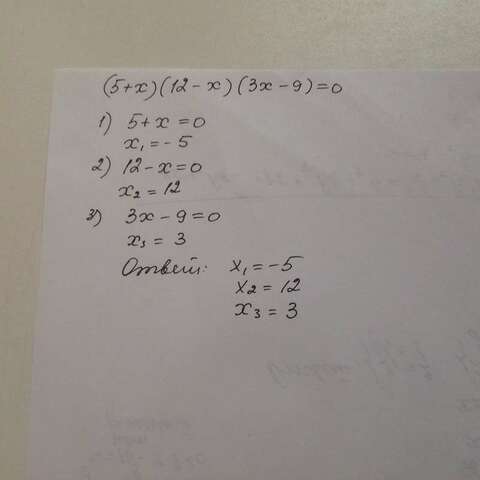 (5+x)(12-x)(3x-9)=0
1) 5+x=0
x₁=-5
2) 12-x=0
x₂=12
3) 3x-9=0
x₃=3
Ответ: x₁=-5
x₂=12
x₃=3